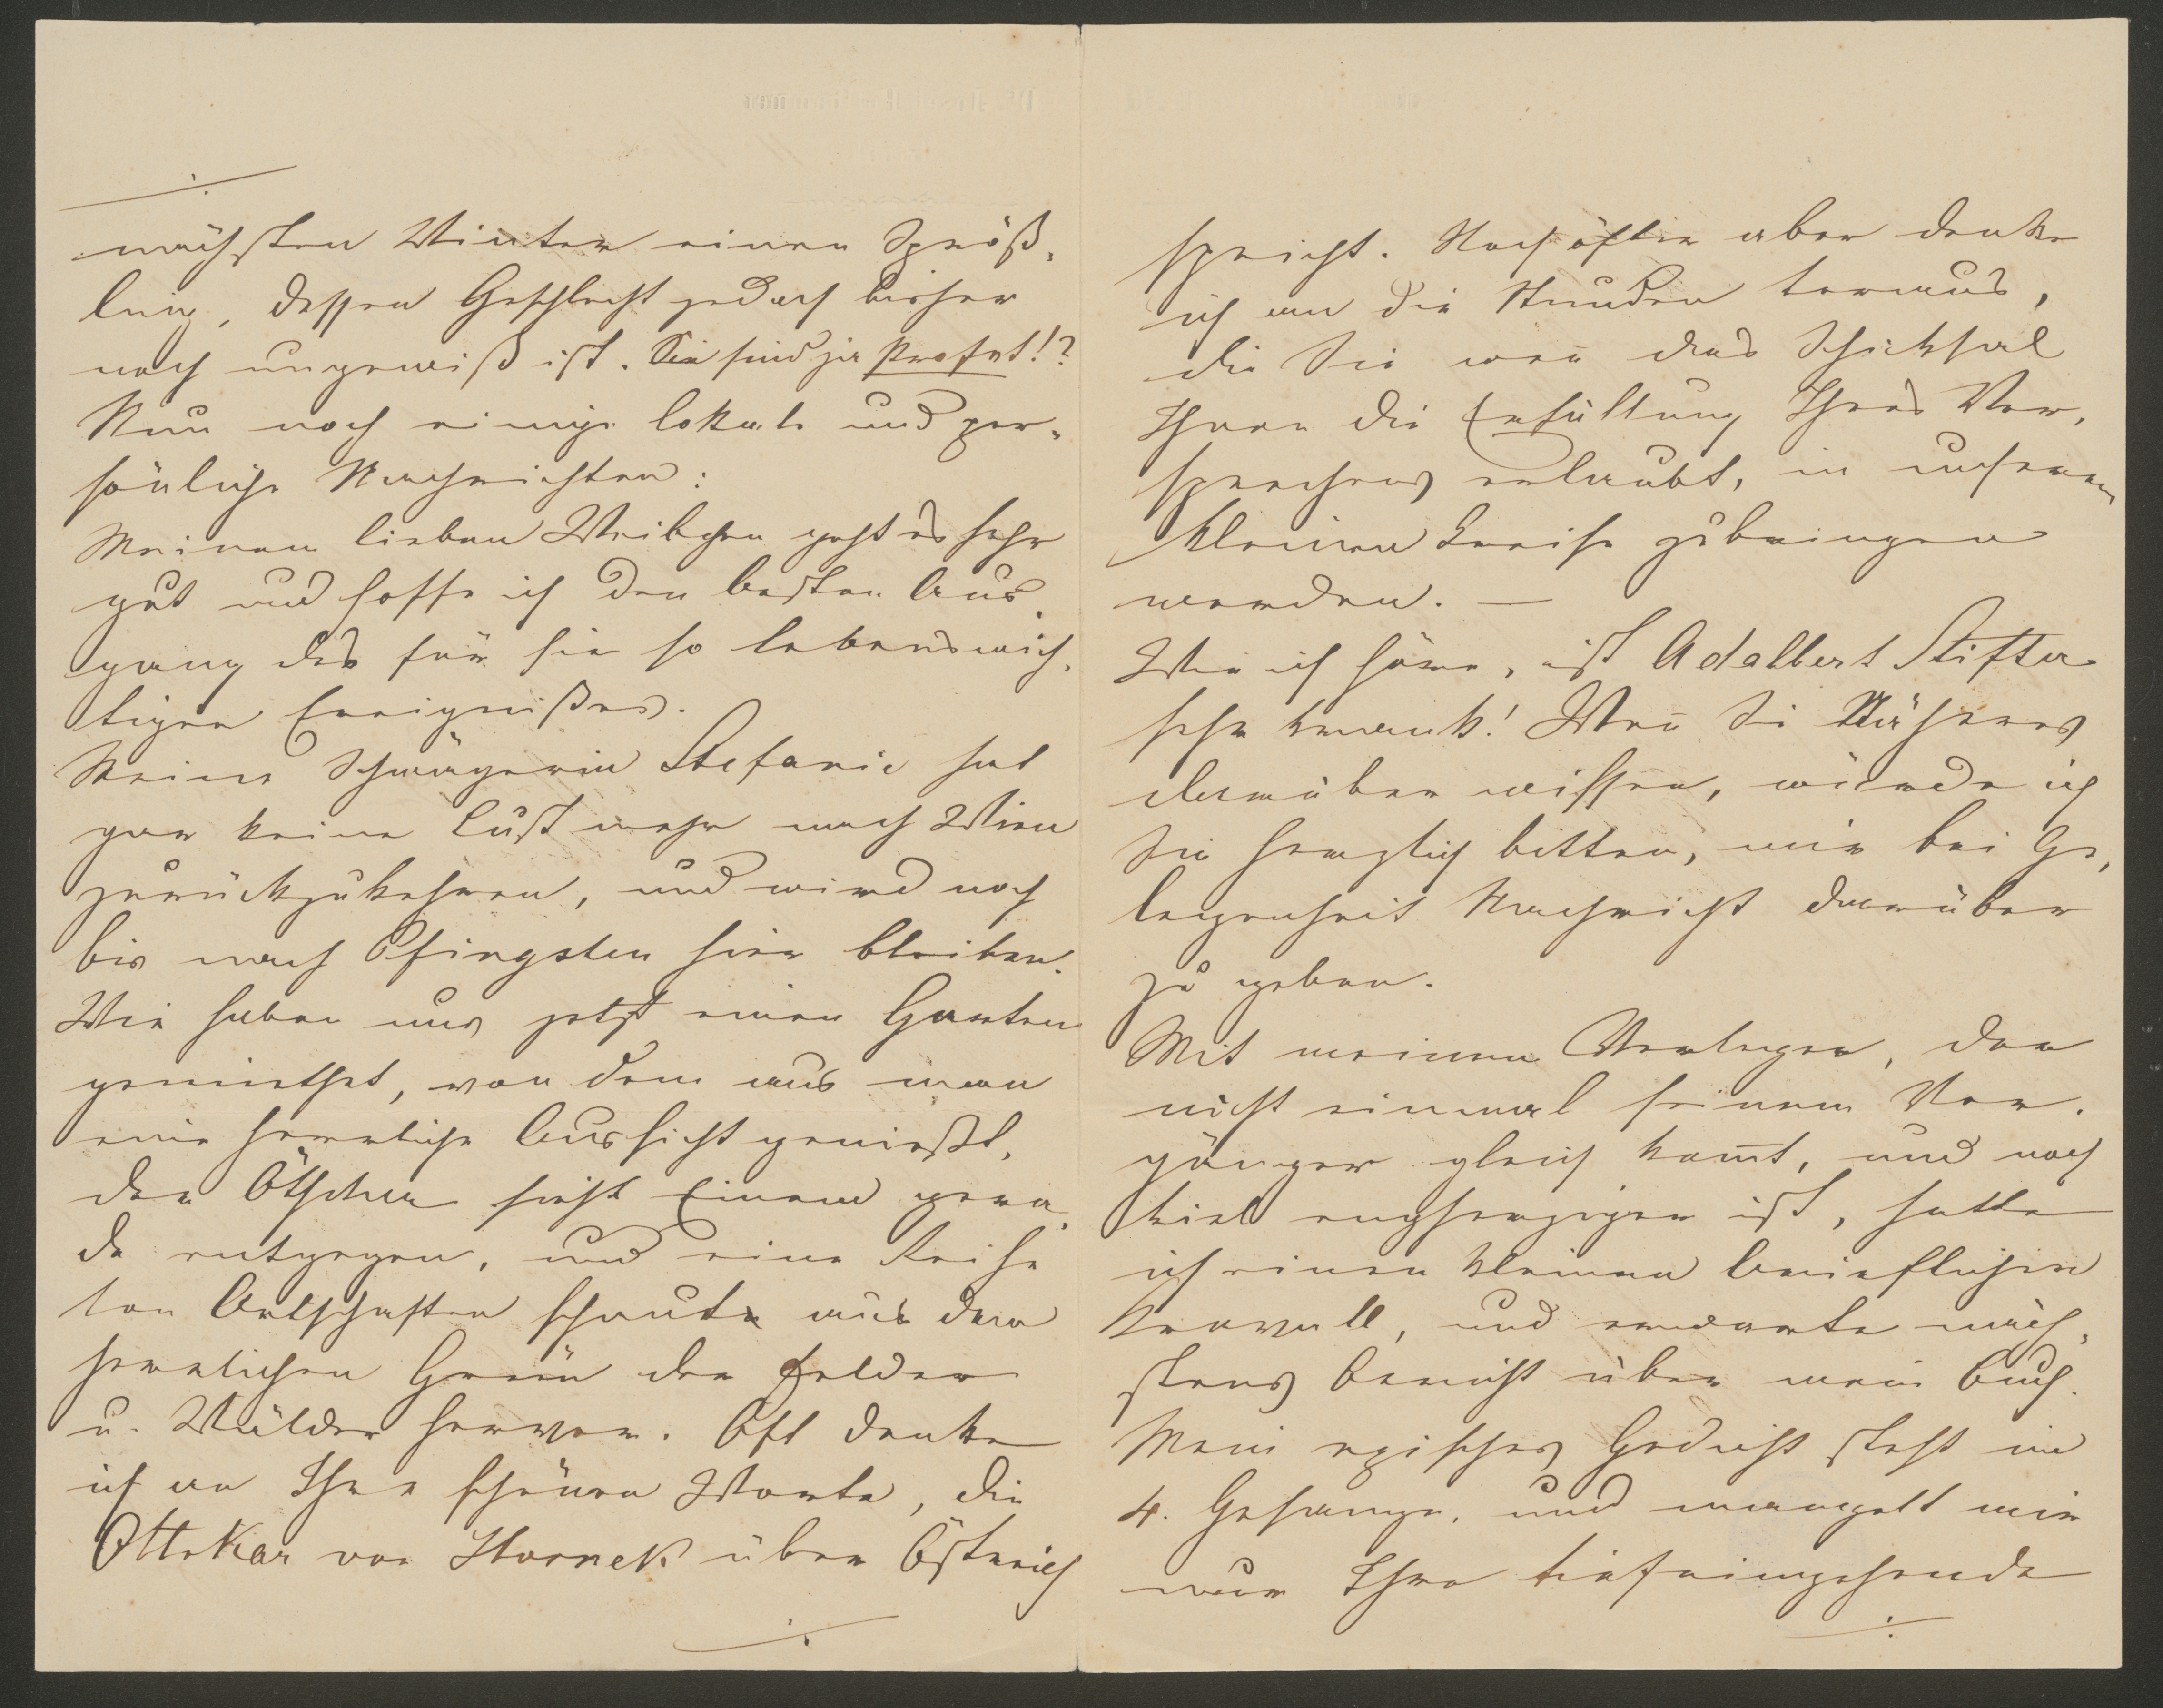 ·/.
nächsten Winter einen Spröß-
ling, dessen Geschlecht jedoch bisher
noch ungewiß ist. Sie sind ja Profet!?
Nun noch einige lokale und per-
sönliche Nachrichten:
Meinem lieben Weibchen geht es sehr
gut und hoffe ich den besten Aus-
gang des für sie so lebenswich-
tigen Ereignißes.
Meine Schwägerin Stefanie hat
gar keine Lust mehr nach Wien
zurückzukehren, und wird noch
bis nach Pfingsten hier bleiben.
Wir haben uns jetzt einen Garten
gemiethet, von dem aus man
eine herrliche Aussicht genießt,
der Ötscher sieht Einem gera-
de entgegen, und eine Reihe
von Ortschaften schaute aus dem
herrlichen Grün der Felder
u. Wälder hervor. Oft denke
ich an Ihre schönen Worte, die
Ottokar von Hornek über Östreich
·/.
spricht. Noch öfter aber denke
ich an die Stunden voraus,
die Sie wen̄ das Schicksal
Ihnen die Erfüllung Ihres Ver-
sprechens erlaubt, in unserem
kleinen Kreise zubringen
werden. —
Wie ich höre, ist Adalbert Stifter
sehr krank! Wen̄ Sie Näheres
darüber wissen, würde ich
Sie herzlich bitten, mir bei Ge-
legenheit Nachricht darüber
zu geben.
Mit meinem Verleger, der
nicht einmal seinem Vor-
gänger gleich kom̄t, und noch
viel engherziger ist, hatte
ich einen kleinen brieflichen
Krawall, und erwarte näch-
stens Bericht über mein Buch.
Mein episches Gedicht steht im
4. Gesange, und mangelt mir
nur Ihre tiefeingehende
·/.